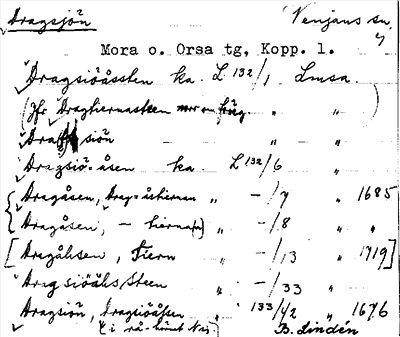 Dragsjön Venjans sn,
Mora o. Orsa tg, Kopp. l.
Dragsiöåssten ka. L 132/1 Lmsa.
(Jfr Draghiernasteen " "
siön " "
Dragsiö-åsen ka. L 132/6 "
{Dragåsen, Drag-åshiernan " -/7 " 1685
Dragåsen, - hierna[n]} " -/8 " "
[Dragåhsen, Tiern " -/13 " 1719]
Dragsiöåhssteen " -/33 "
Dragsiön, Dragsiöåssen " 133/42 " 1676
B. Lindén